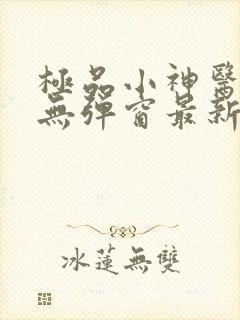 極品小神醫
無彈窗最新
冰蓮無雙